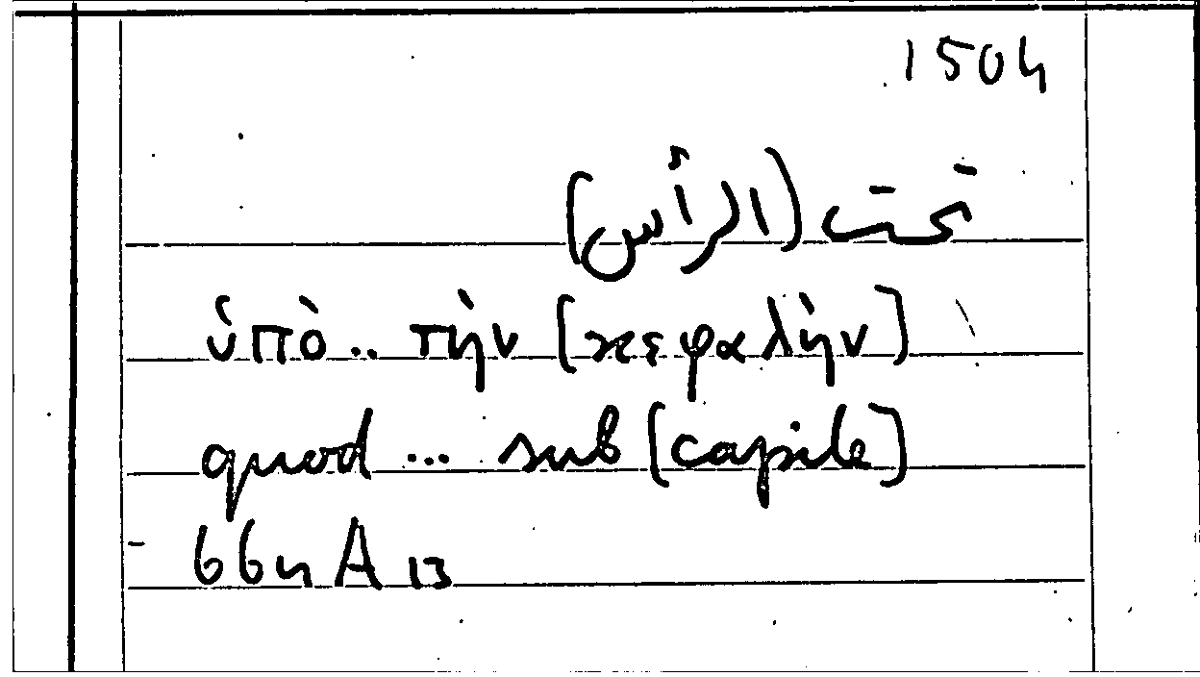 1504
تحت (الرأس)
ὑπὸ.. τὴν [κεφαλὴν]
quod ... sub [capite]
664 A 13